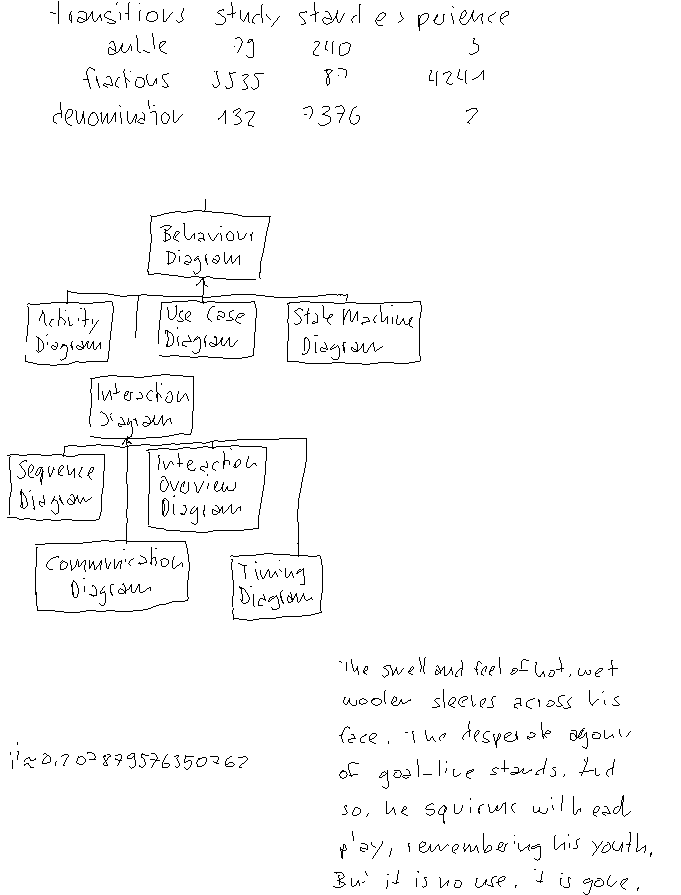 transitions study stand experience
ankle 79 240 3
fractions 3535 87 4241
denominator 132 7376 2
Behaviour
Diagram
Activity
Diagram
Use Case
Diagram
State Machine
Diagram
Interaction
Diagram
Sequence
Diagram
Interaction
Overview
Diagram
Communication
Diagram
Timing
Diagram
i^i ≈ 0,207879576350762
The smell and feel of hot, wet
woolen sleeves across his
face. The desperate agony
of goal-line stands. And
so, he squirms with each
play, remembering his youth.
But it is no use. it is gone.